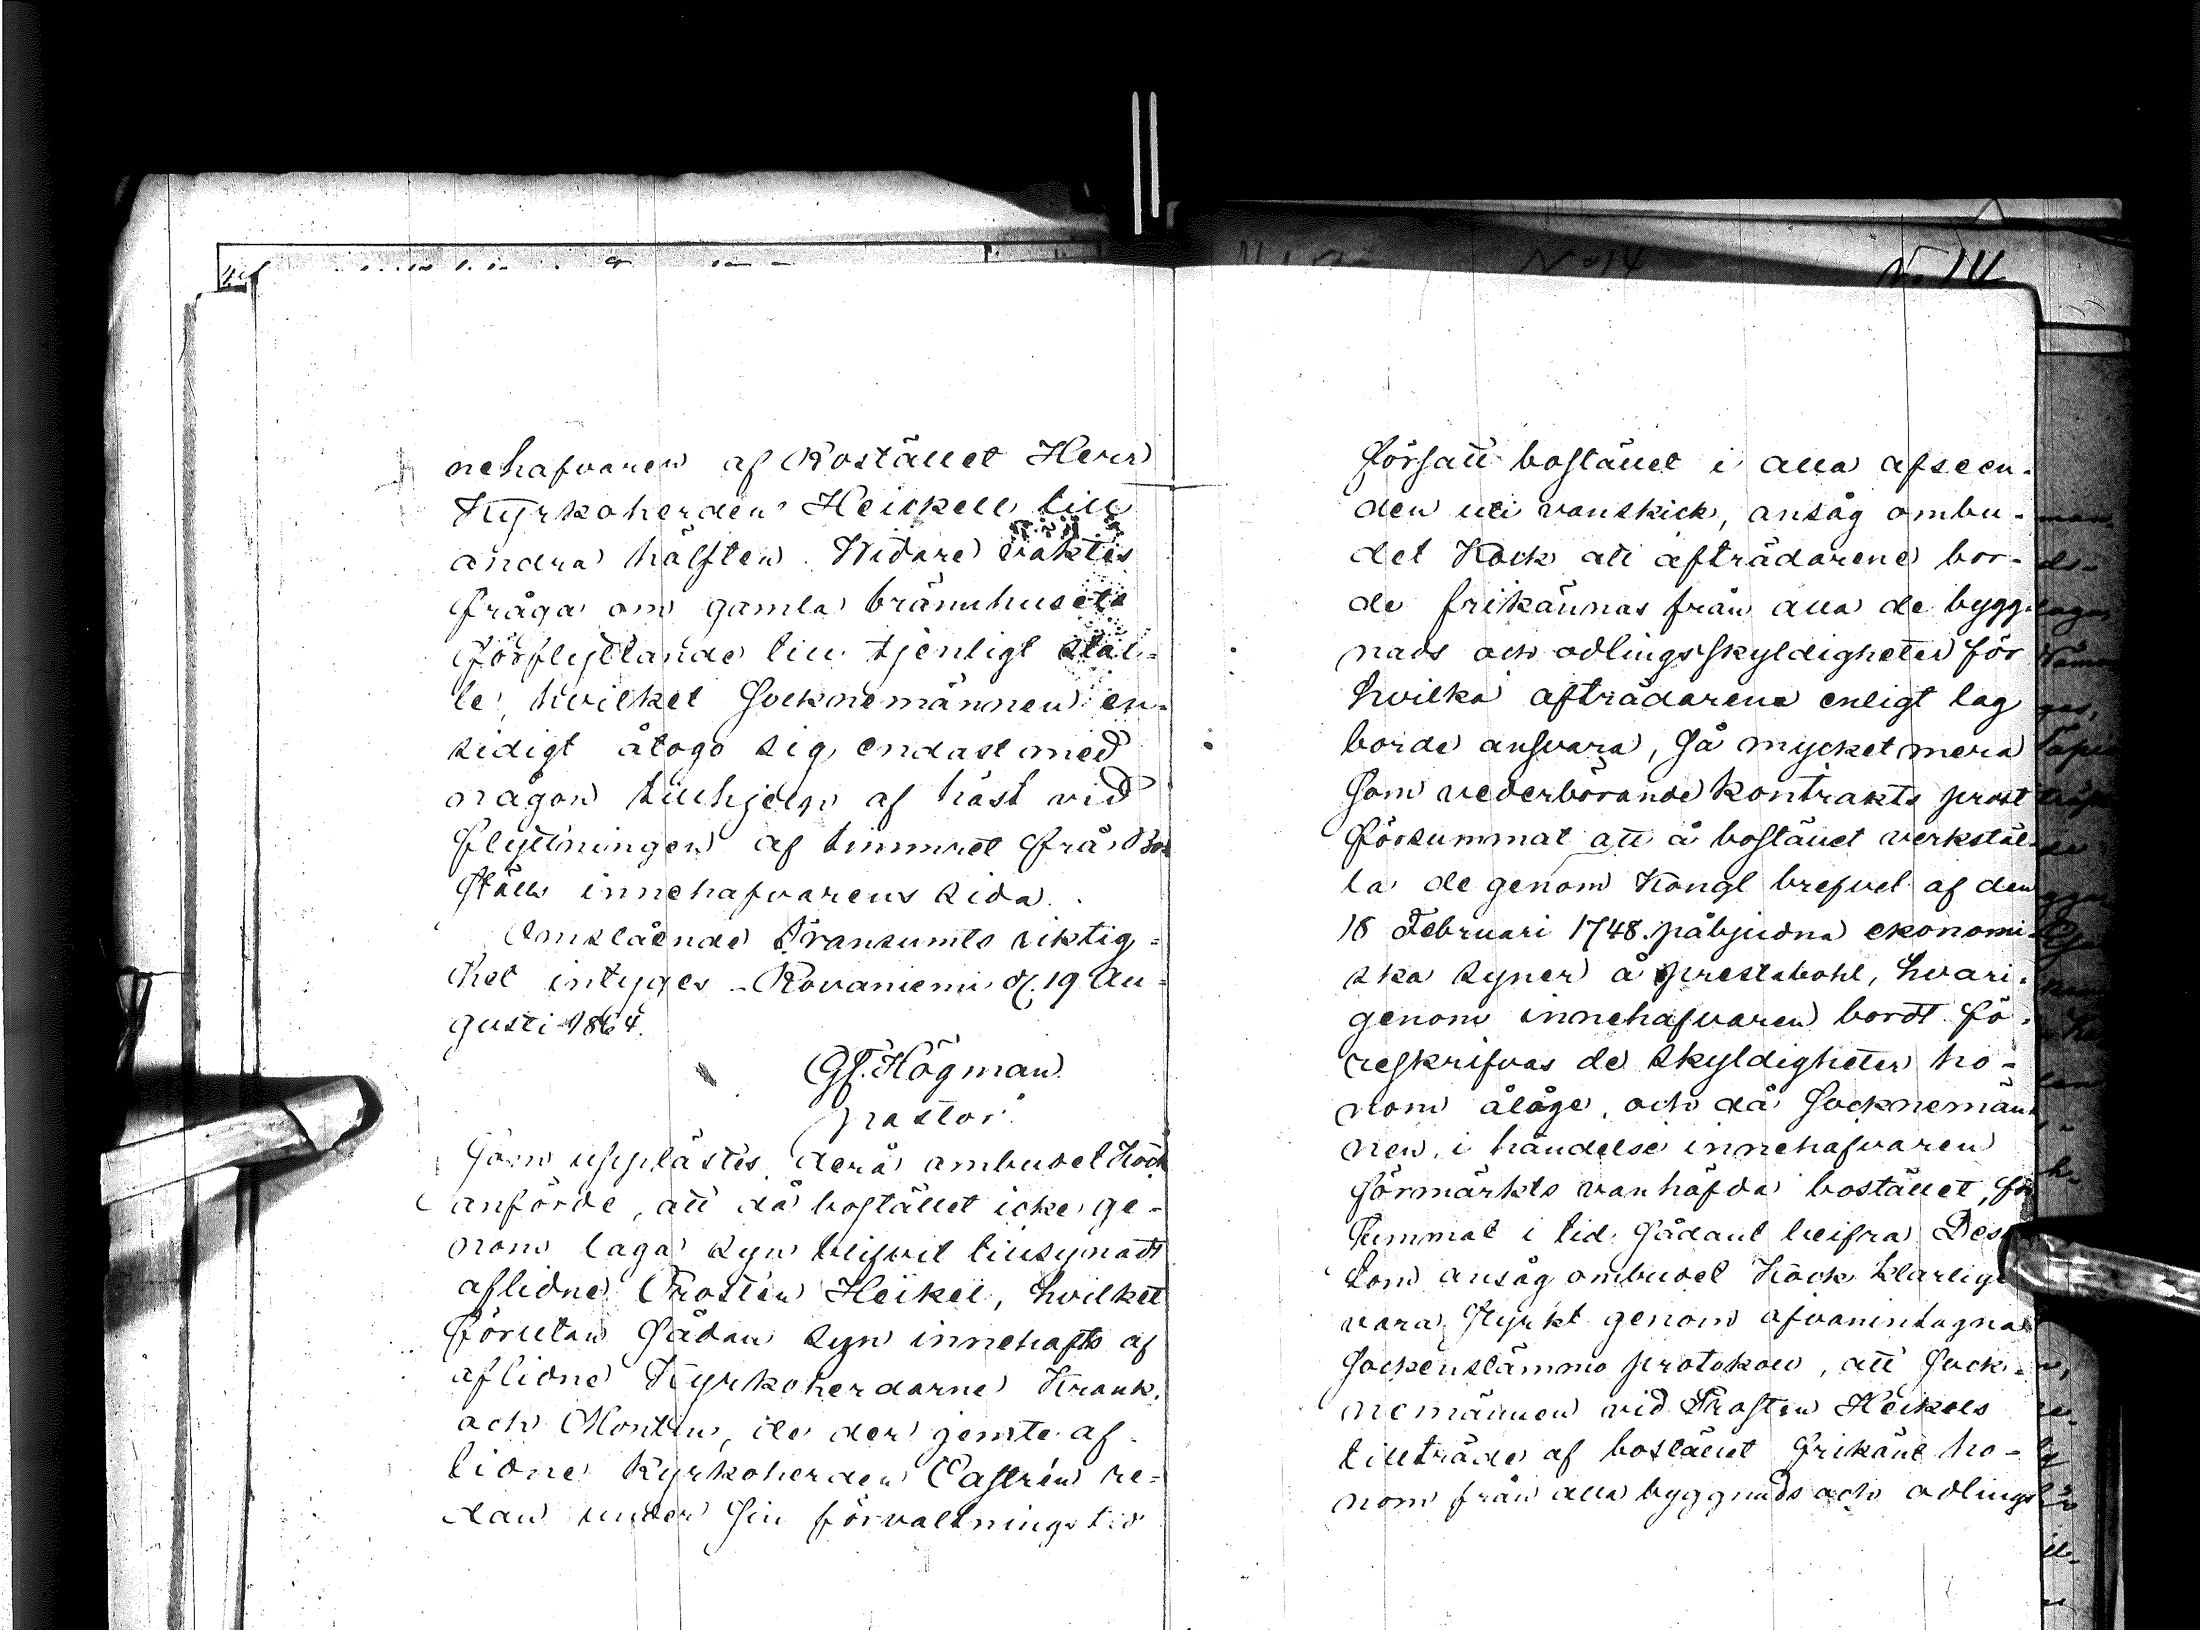 nehafvaren af Bostället Herr
Kyrkoherden Heickell till
andra hälften. Widare väktes
fråga om gamla brännhusets
förflyttande till tjenligt stäl-
le, hvilket Socknemännen en-
sidigt åtogo sig, endast med
någon tillhjelp af häst vid
flyttningen af timmret från Bo-
ställs innehafvarens sida.
Omstående Transumts riktig-
het intyges. Rovaniemi d. 19 Au-
gusti 1864.
Gf. Högman
pastor.
Som upplästes, derå ombudet Kock
anförde, att då bostället icke ge-
nom laga syn blifvit tillsynadt
aflidne Prosten Heikel, hvilket
förutan sådan syn innehafts af
aflidne Kyrkoherdarne Krank,
och Montin, de der jemte af-
lidne Kyrkoherden Castrén re-
dan under sin förvaltningstid
N. 14
försatt bostället i alla afseen-
den uti vanskick, ansåg ombu-
det Kock att afträdarene bor-
de frikännas från alla de bygg-
nads och odlingsskyldigheter för
hvilka afträdarena enligt lag
borde ansvara, så mycket mera
som vederbörande kontrakts prost
försummat att å bostället verkstäl-
la de genom Kongl brefvet af den
18 Februari 1748 påbjudna ekonomi-
ska syner å prestabohl, hvari-
genom innehafvaren bordt fö-
reskrifvas de skyldigheter ho-
nom ålåge, och då Socknemän-
nen, i händelse innehafvaren
förmärkts vanhäfda bostället, för
summat i tid sådant beifra. Des-
som ansåg ombudet Kock klarlige
vara styrkt genom ofvanintagna
Sockenstämmo protokoll, att Sock-
nemännen vid Prosten Heikels
tillträde af bostället frikänt ho-
nom från alla byggnads och odlings